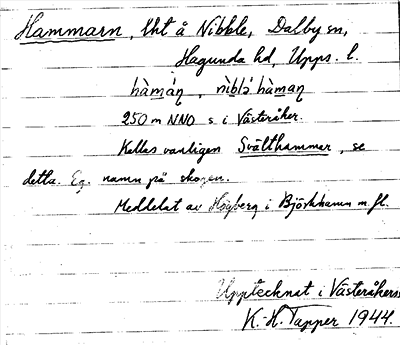 Hammarn, lht å Nibble, Dalby sn,
Hagunda hd, Upps. l.
hàmáɳ, nìblə hàmaɳ
250 m NNO s i Västeråker.
Kallas vanligen Svälthammar, se
detta. Eg. namn på skogen.
Meddelat av Högberg i Björkhamn m.fl.
Upptecknat i Västeråkers
K.-H. Tapper 1944.